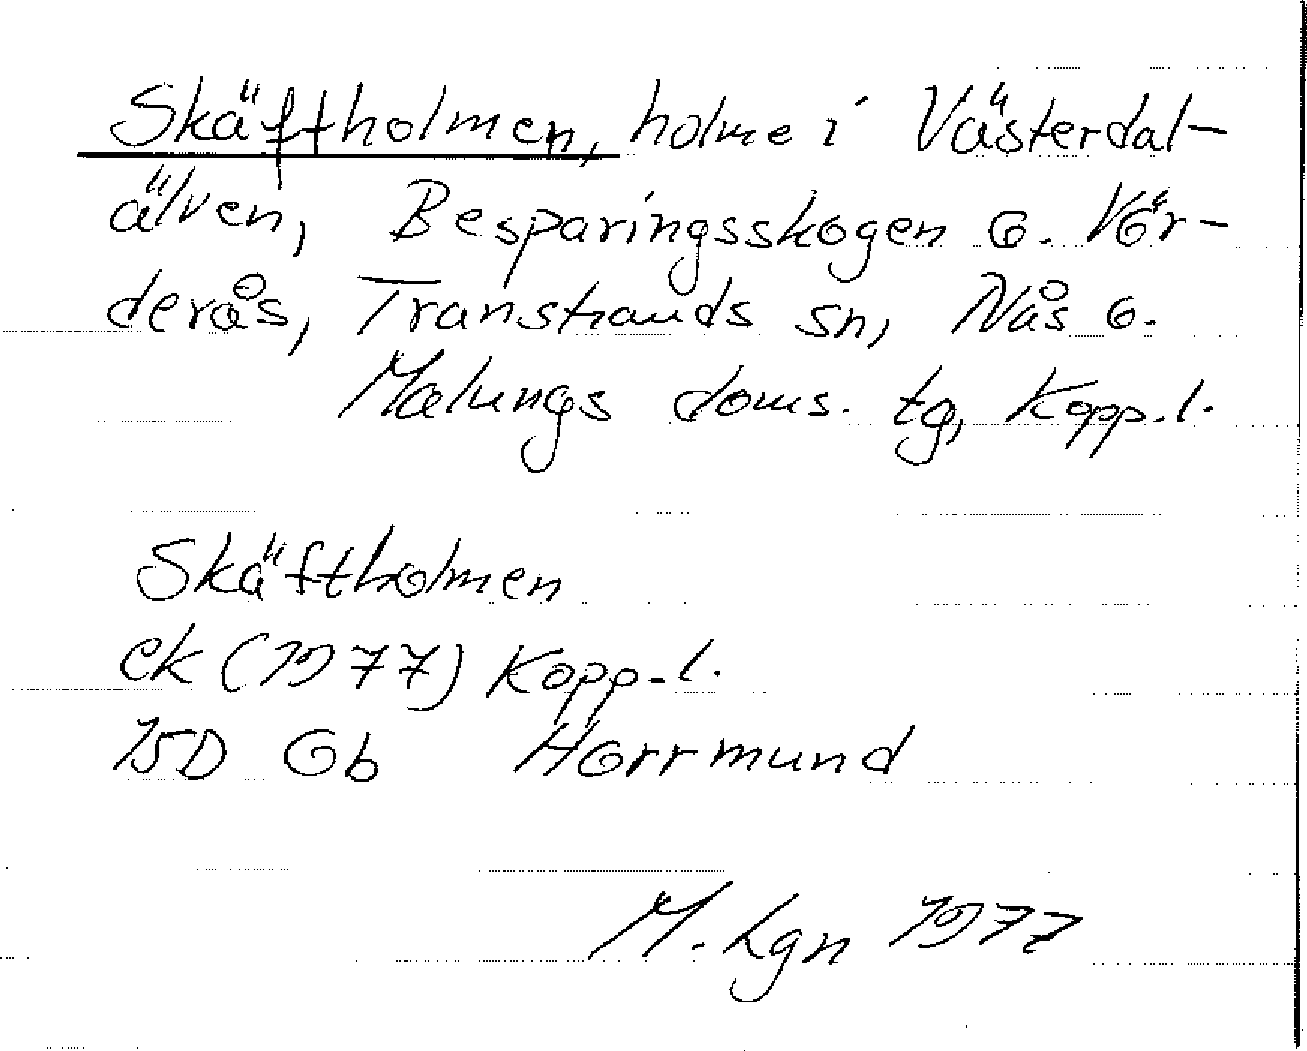 Skäftholmen, holme i Västerdal-
älven, Besparingsskogen o. Vör-
derås, Transtrands sn, Nås o.
Malungs doms. tg, Kopp.l.
Skäftholmen
ek (1977) Kopp.l.
15D 0b Horrmund
M. Lgn 1977